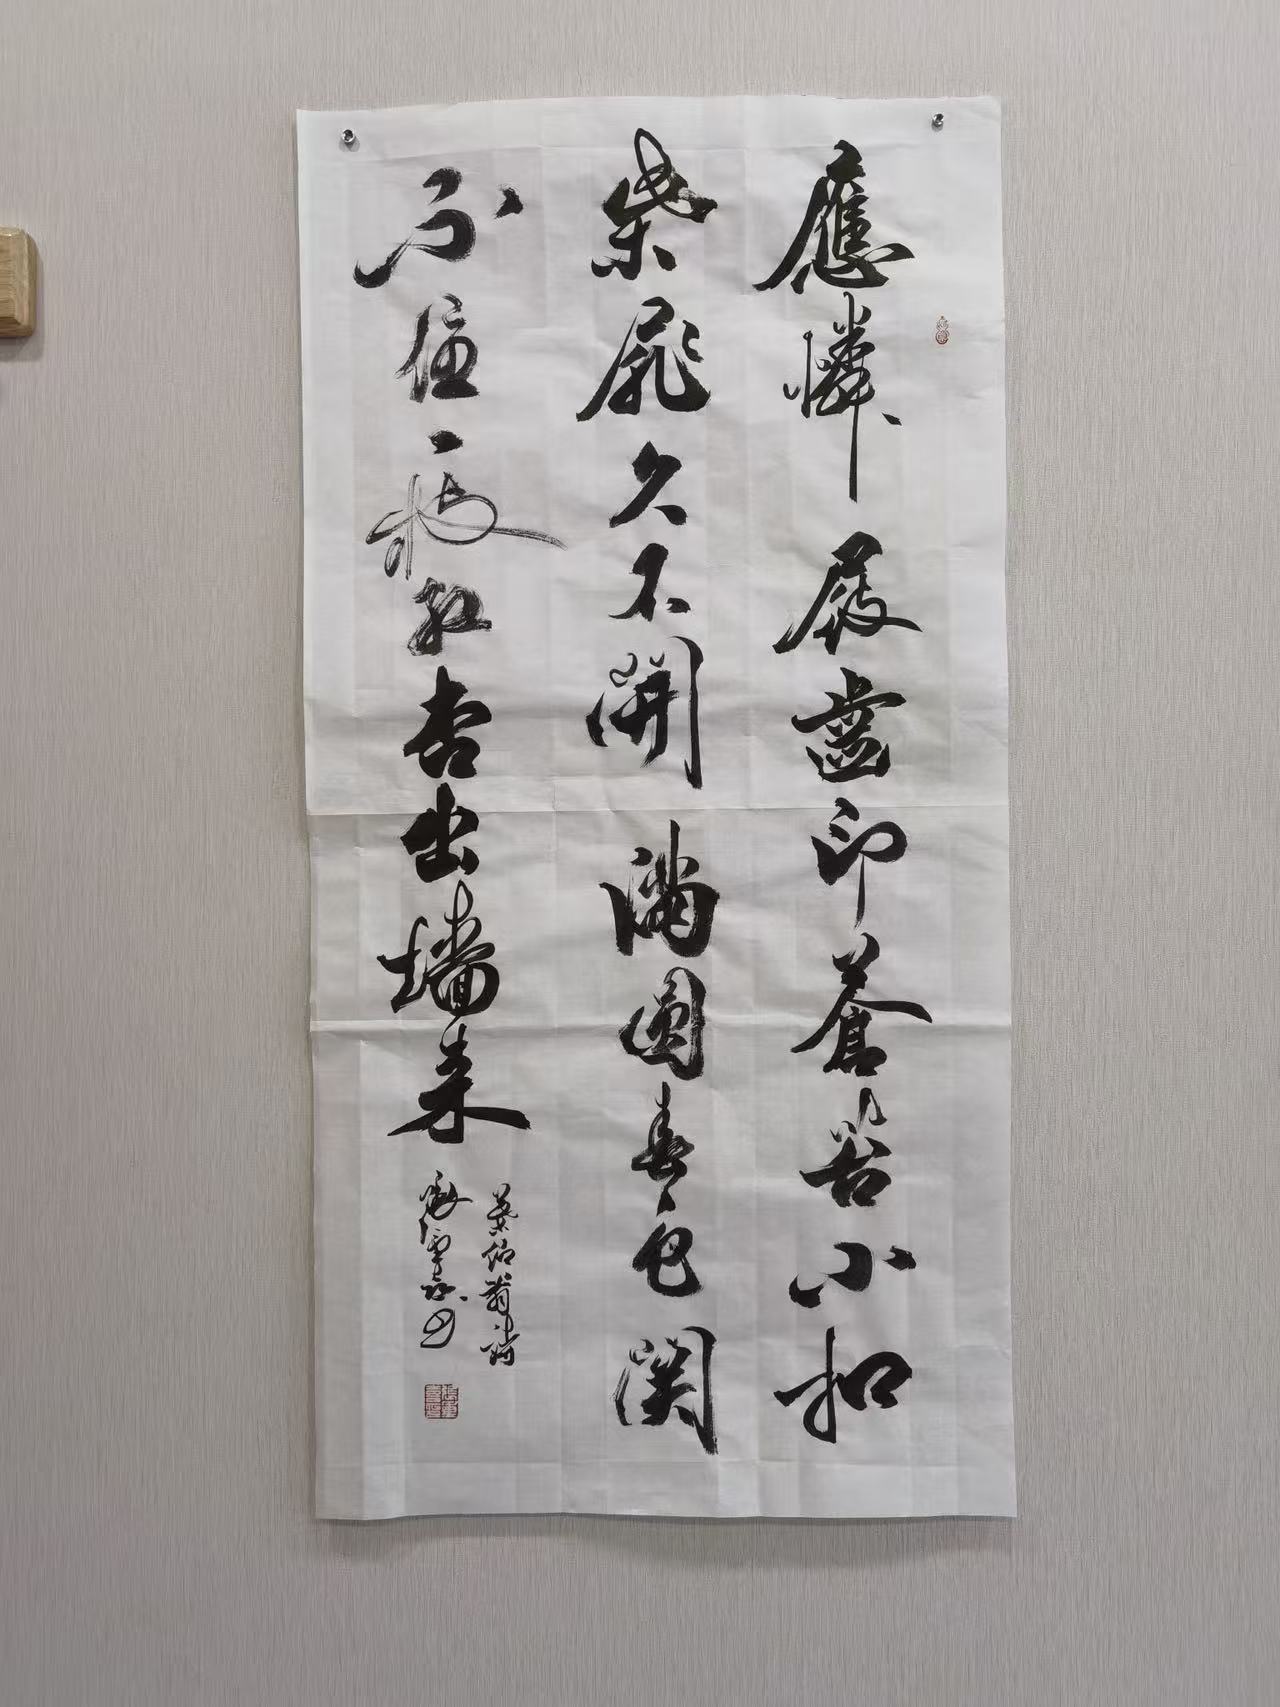 應憐屐齒印蒼苔小扣
柴扉久不開滿園春色関
不住一枝紅杏出墻来
葉紹翁詩